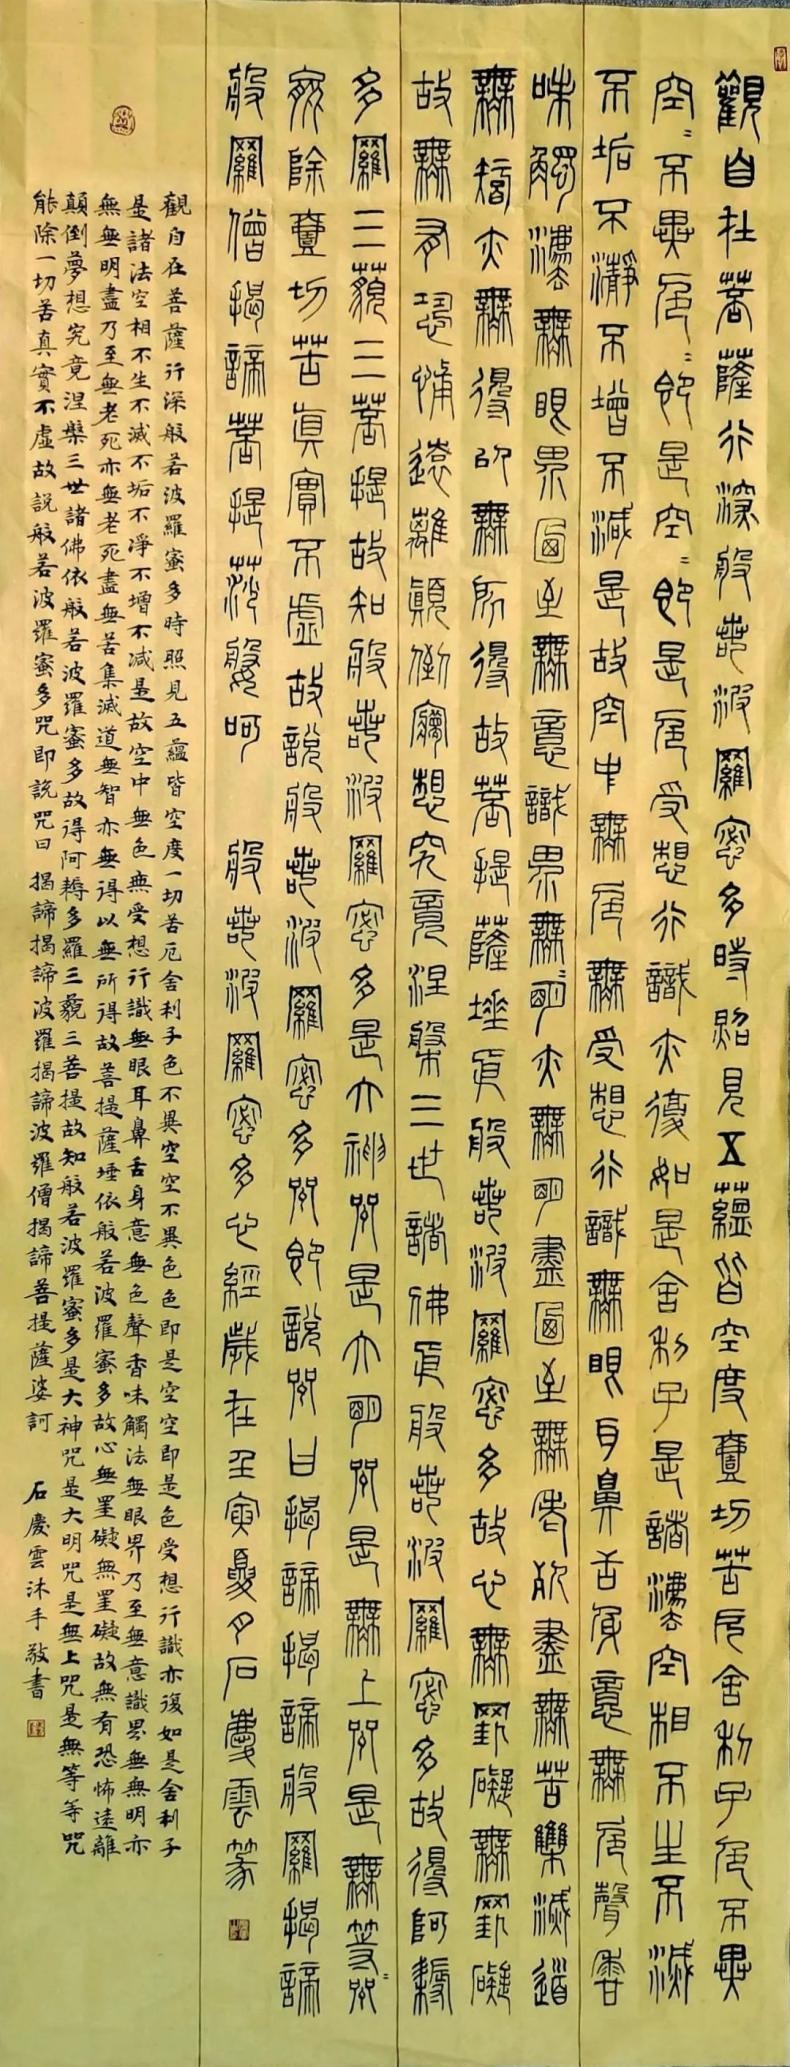 觀自在菩薩行深般若波羅蜜多時照見五蘊皆空度壹切苦厄舍利子色不異
空〻不異色〻即是空〻即是色受想行識亦復如是舍利子是諸灋空相不生不滅
不垢不瀞不增不減是故空中無色無受想行識無眼耳鼻舌身意無色聲香
味觸灋無眼界乃至無意識界無〻明亦無明盡乃至無老死盡無苦集滅道
無智亦無得以無所得故菩提薩埵依般若波羅蜜多故心無罣礙無罣礙
故無有恐怖遠離顛倒夢想究竟涅槃三世諸佛依般若波羅蜜多故得阿耨
多羅三藐三菩提故知般若波羅蜜多是大神咒是大明咒是無上咒是無等〻咒
能除壹切苦真實不虛故說般若波羅蜜多咒即說咒曰揭諦揭諦般羅揭諦
般羅僧揭諦菩提莎婆呵 般若波羅蜜多心經歲在壬寅夏月石慶雲篆
觀自在菩薩行深般若波羅蜜多時照見五蘊皆空度一切苦厄舍利子色不異空空不異色色即是空空即是色受想行識亦復如是舍利子
是諸法空相不生不滅不垢不淨不增不減是故空中無色無受想行識無眼耳鼻舌身意無色聲香味觸法無眼界乃至無意識界無無明亦
無無明盡乃至無老死亦無老死盡無苦集滅道無智亦無得以無所得故菩提薩埵依般若波羅蜜多故心無罣礙無罣礙故無有恐怖遠離
顛倒夢想究竟涅槃三世諸佛依般若波羅蜜多故得阿耨多羅三藐三菩提故知般若波羅蜜多是大神咒是大明咒是無上咒是無等等咒
能除一切苦真實不虛故說般若波羅蜜多咒即說咒曰 揭諦揭諦波羅揭諦波羅僧揭諦菩提薩婆訶 石慶雲沐手敬書